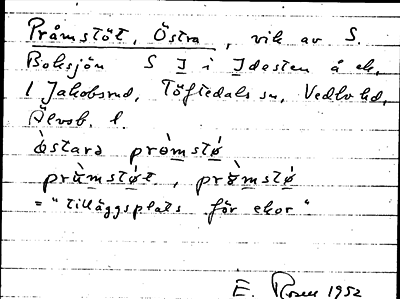 Pråmstöt, Östra, vik av S.
Boksjön S I i Idesten å ek.
1 Jakobsrud, Töftedals sn, Vedbo hd,
Älvsb. l.
òstarə prὰmstǿ
prὰmstǿt, prὰmstǿ
= "tilläggsplats för ekor"
E. Rosell 1952